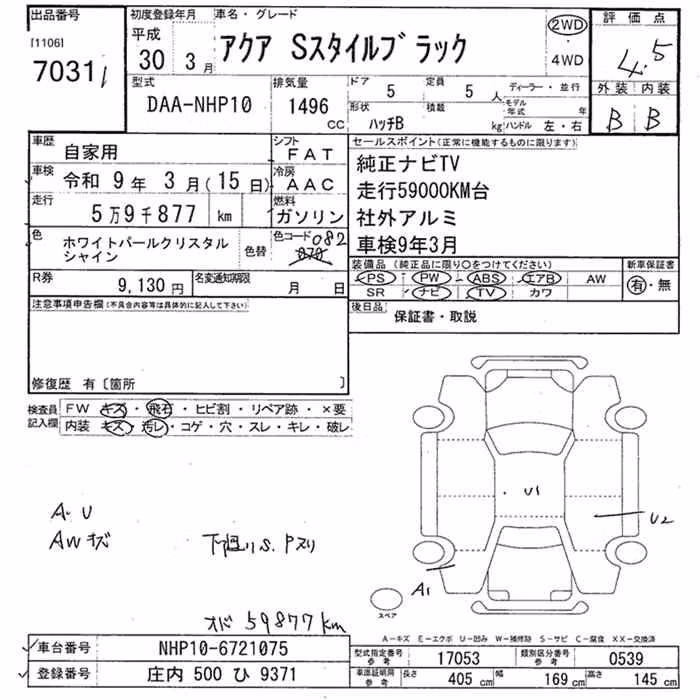 出品番号
[1106]
70311
初度登録年月
平成
30 3月
車名・グレード
アクア Sスタイルブラック
2WD
・
4WD
評価点
4.5
外装 内装
B B
型式
DAA-NHP10
排気量
1496
CC
ドア 5
定員 5 人
形状 ハッチB
積載 kg
ディーラー・並行
モデル年式 年
ハンドル 左・右
車歴 自家用
車検 令和 9年 3月(15日)
走行 5万9千877 km
色 ホワイトパールクリスタルシャイン
色替
シフト FAT
冷房 AAC
燃料 ガソリン
色コード 082
070
R券 9,130円
名変通知期限 月 日
セールスポイント(正常に機能するものに限ります)
純正ナビTV
走行59000KM台
社外アルミ
車検9年3月
装備品(純正品に限り〇をつけてください)
PS PW ABS エアB AW
SR ナビ TV カワ
新車保証書
有・無
後日品
保証書・取説
注意事項申告欄(不具合内容等は具体的に記入して下さい)
修復歴 有〔箇所 〕
検査員記入欄
FW キズ・飛石・ヒビ割・リペア跡・×要
内装 キズ・汚レ・コゲ・穴・スレ・キレ・破レ
A・U
AWキズ
下回りS.Pスリ
オド 59877km
U1
U2
A1
スペア
A-キズ E-エクボ U-凹み W-補修跡 S-サビ C-腐食 XX-交換済
車台番号 NHP10-6721075
登録番号 庄内 500 ひ 9371
型式指定番号 参考 17053
類別区分番号 参考 0539
車庫証明用 参考 長さ 405 cm 幅 169 cm 高さ 145 cm